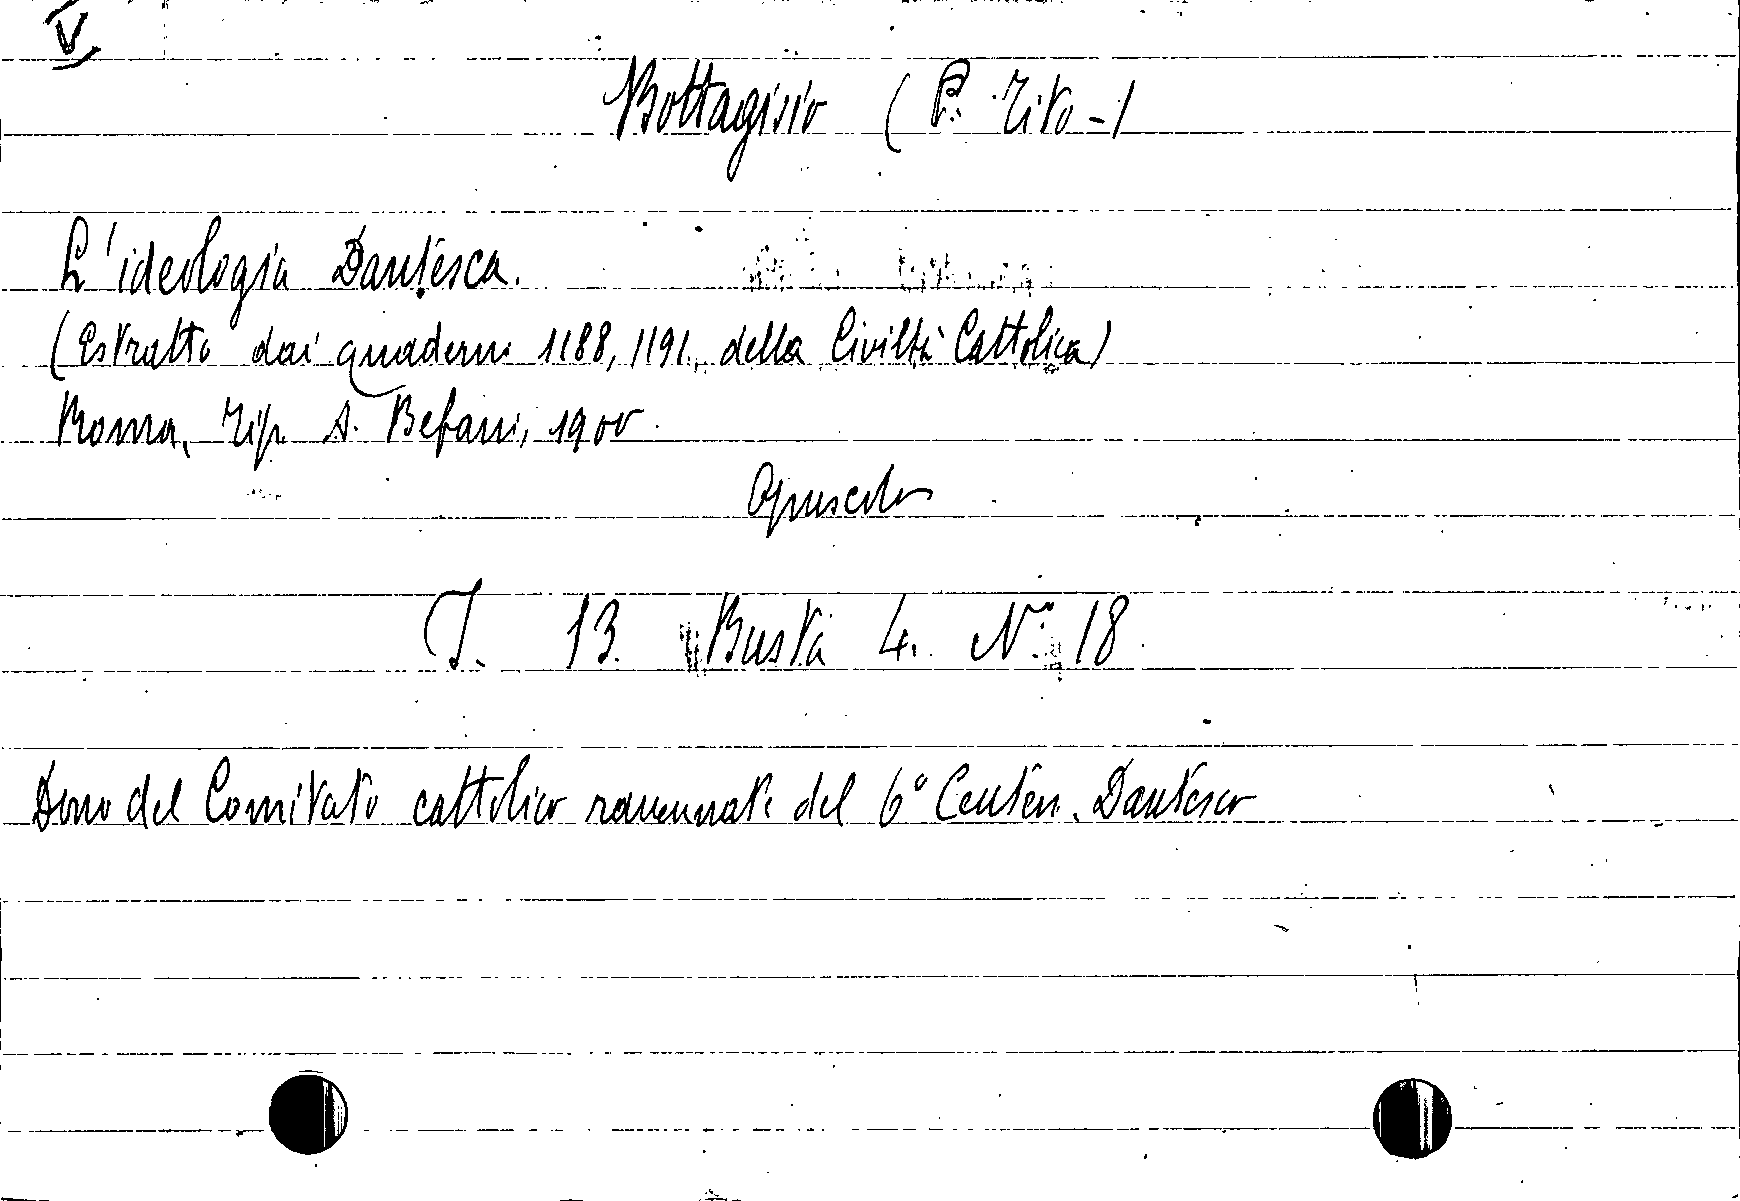 V
Bottagisio (P. Tito-)
L'ideologia Dantesca.
(Estratto dai quaderni 1188, 1191. della Civiltà Cattolica)
Roma, Tip. A. Befani, 1900.
Opuscolo
J. 13. Busta 4. N° 18
Dono del Comitato cattolico ravennate del 6° Centen. Dantesco